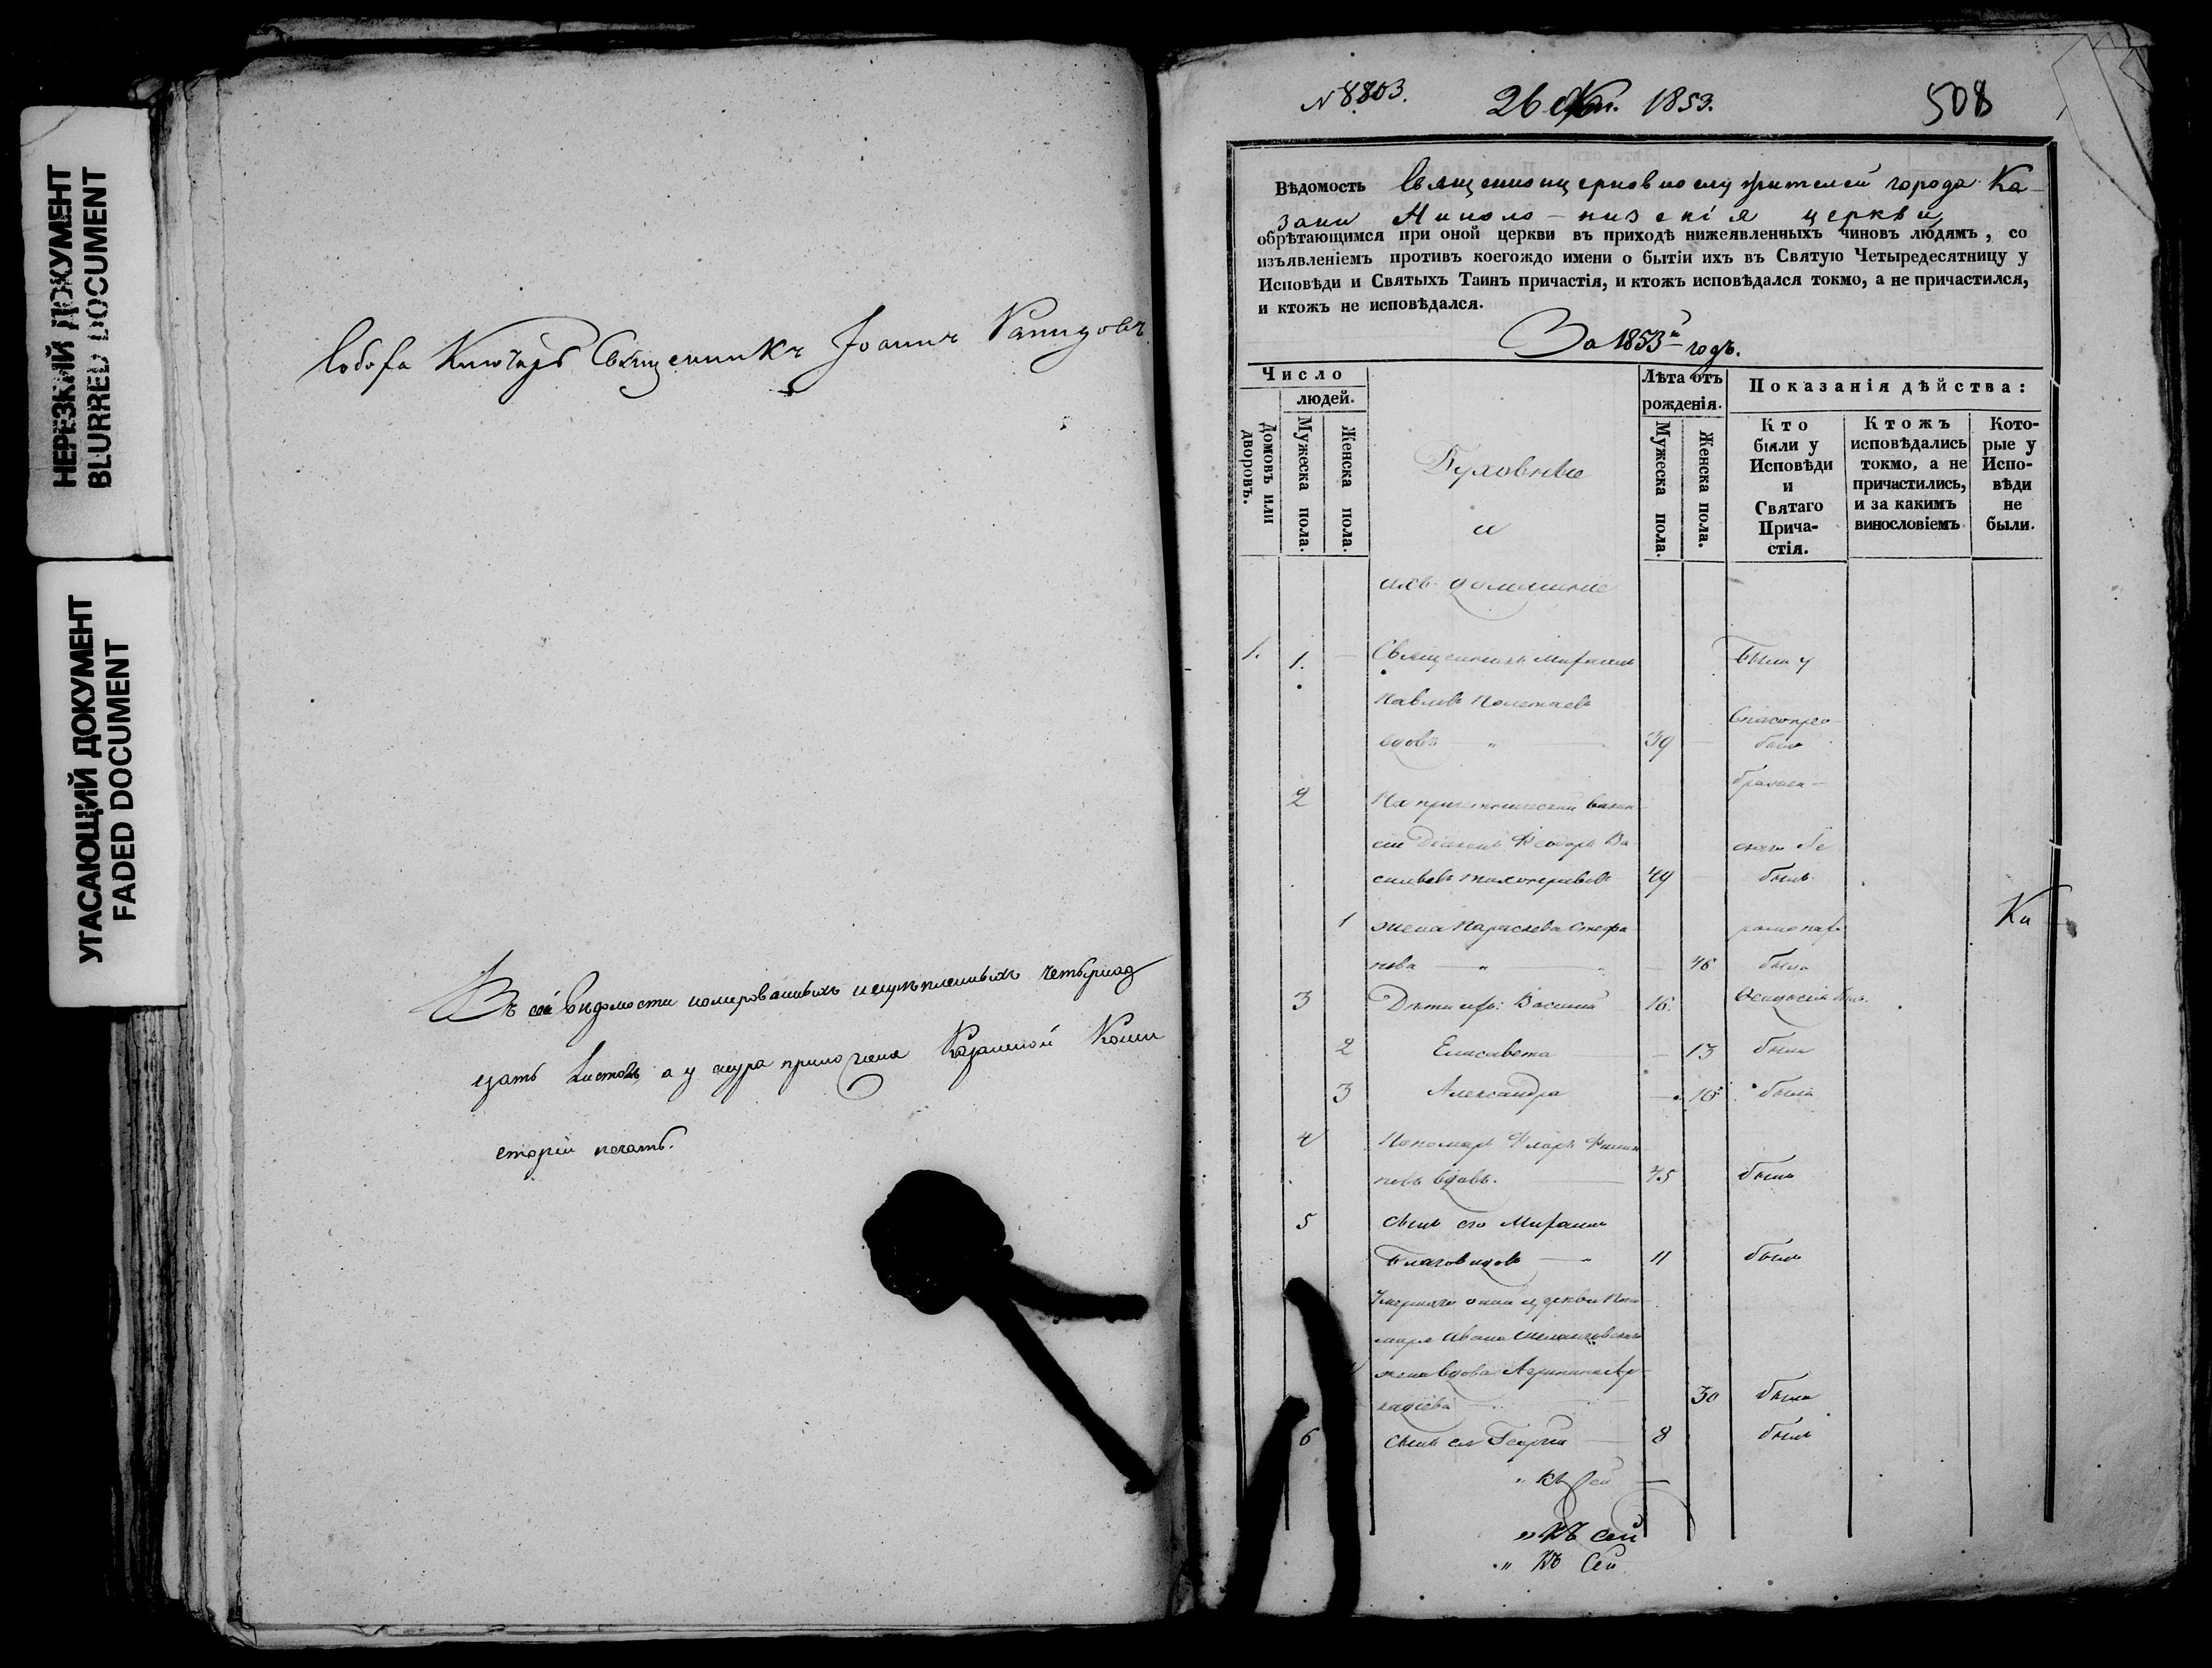 НЕРЕЗКИЙ ДОКУМЕНТ
BLURRED DOCUMENT
УГАСАЮЩИЙ ДОКУМЕНТ
FADED DOCUMENT
Собора Ключарь Священникъ Іоаннъ
Въ сей вѣдомости номерованныхъ четырнад
цать листовъ, а у шнура приложена Казанской Конси
сторіи печать.
N 8803. 26 1853. 508
Вѣдомость Священноцерковнослужителей города Ка
зани Николо-низскія церкви
обрѣтающимся при оной церкви въ приходѣ нижеявленныхъ чиновъ людямъ, со
изъявленіемъ противъ коегождо имени о бытіи ихъ въ Святую Четыредесятницу у
Исповѣди и Святыхъ Таинъ причастія, и ктожъ исповѣдался токмо, а не причастился,
и ктожъ не исповѣдался.
За 1853й годъ.
Число
людей.
Домовъ или дворовъ.
Мужеска пола.
Женска пола.
Духовные
и
ихъ домашніе
Лѣта отъ
рожденія.
Мужеска пола.
Женска пола.
Показанія дѣйства:
Кто
были у
Исповѣди
и
Святаго
Прича-
стія.
Ктожъ
исповѣдались
токмо, а не
причастились,
и за какимъ
винословіемъ
Кото-
рые у
Испо-
вѣди
не
были.
1. 1. — Священникъ Михаилъ Были у
Павловъ Полетаевъ
Спасопрео-
вдовъ — " — 39 — былъ
бражен-
2 На причетнической вакан
сіи Діаконъ Ѳеодоръ Ва
скаго Ѳе
сильевъ 49 — былъ
1 жена Параскева Стефа
Ка
нова — " — 46 была
3 Дѣти ихъ: Василій 16.
2 Елисавета — 13 была
3 Александра — 10 была
4 Пономарь Флоръ Филип
повъ вдовъ. — 45 былъ
5 сынъ его Михаилъ
Благовидовъ — " 11 былъ
Умершаго оной церкви Поно
маря Ивана
жена вдова Агрипина Ар
кадіева 30 была
6 сынъ ея Георгій — 8 былъ
" Къ сей —
" Къ сей
" Къ Сей